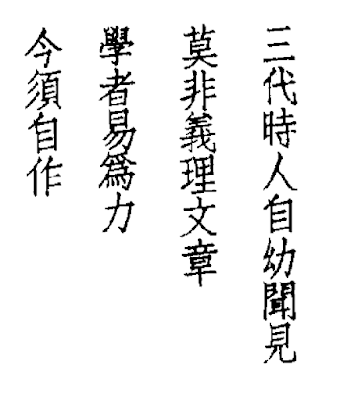 三代時人自幼聞見
莫非義理文章
學者易為力
今須自作